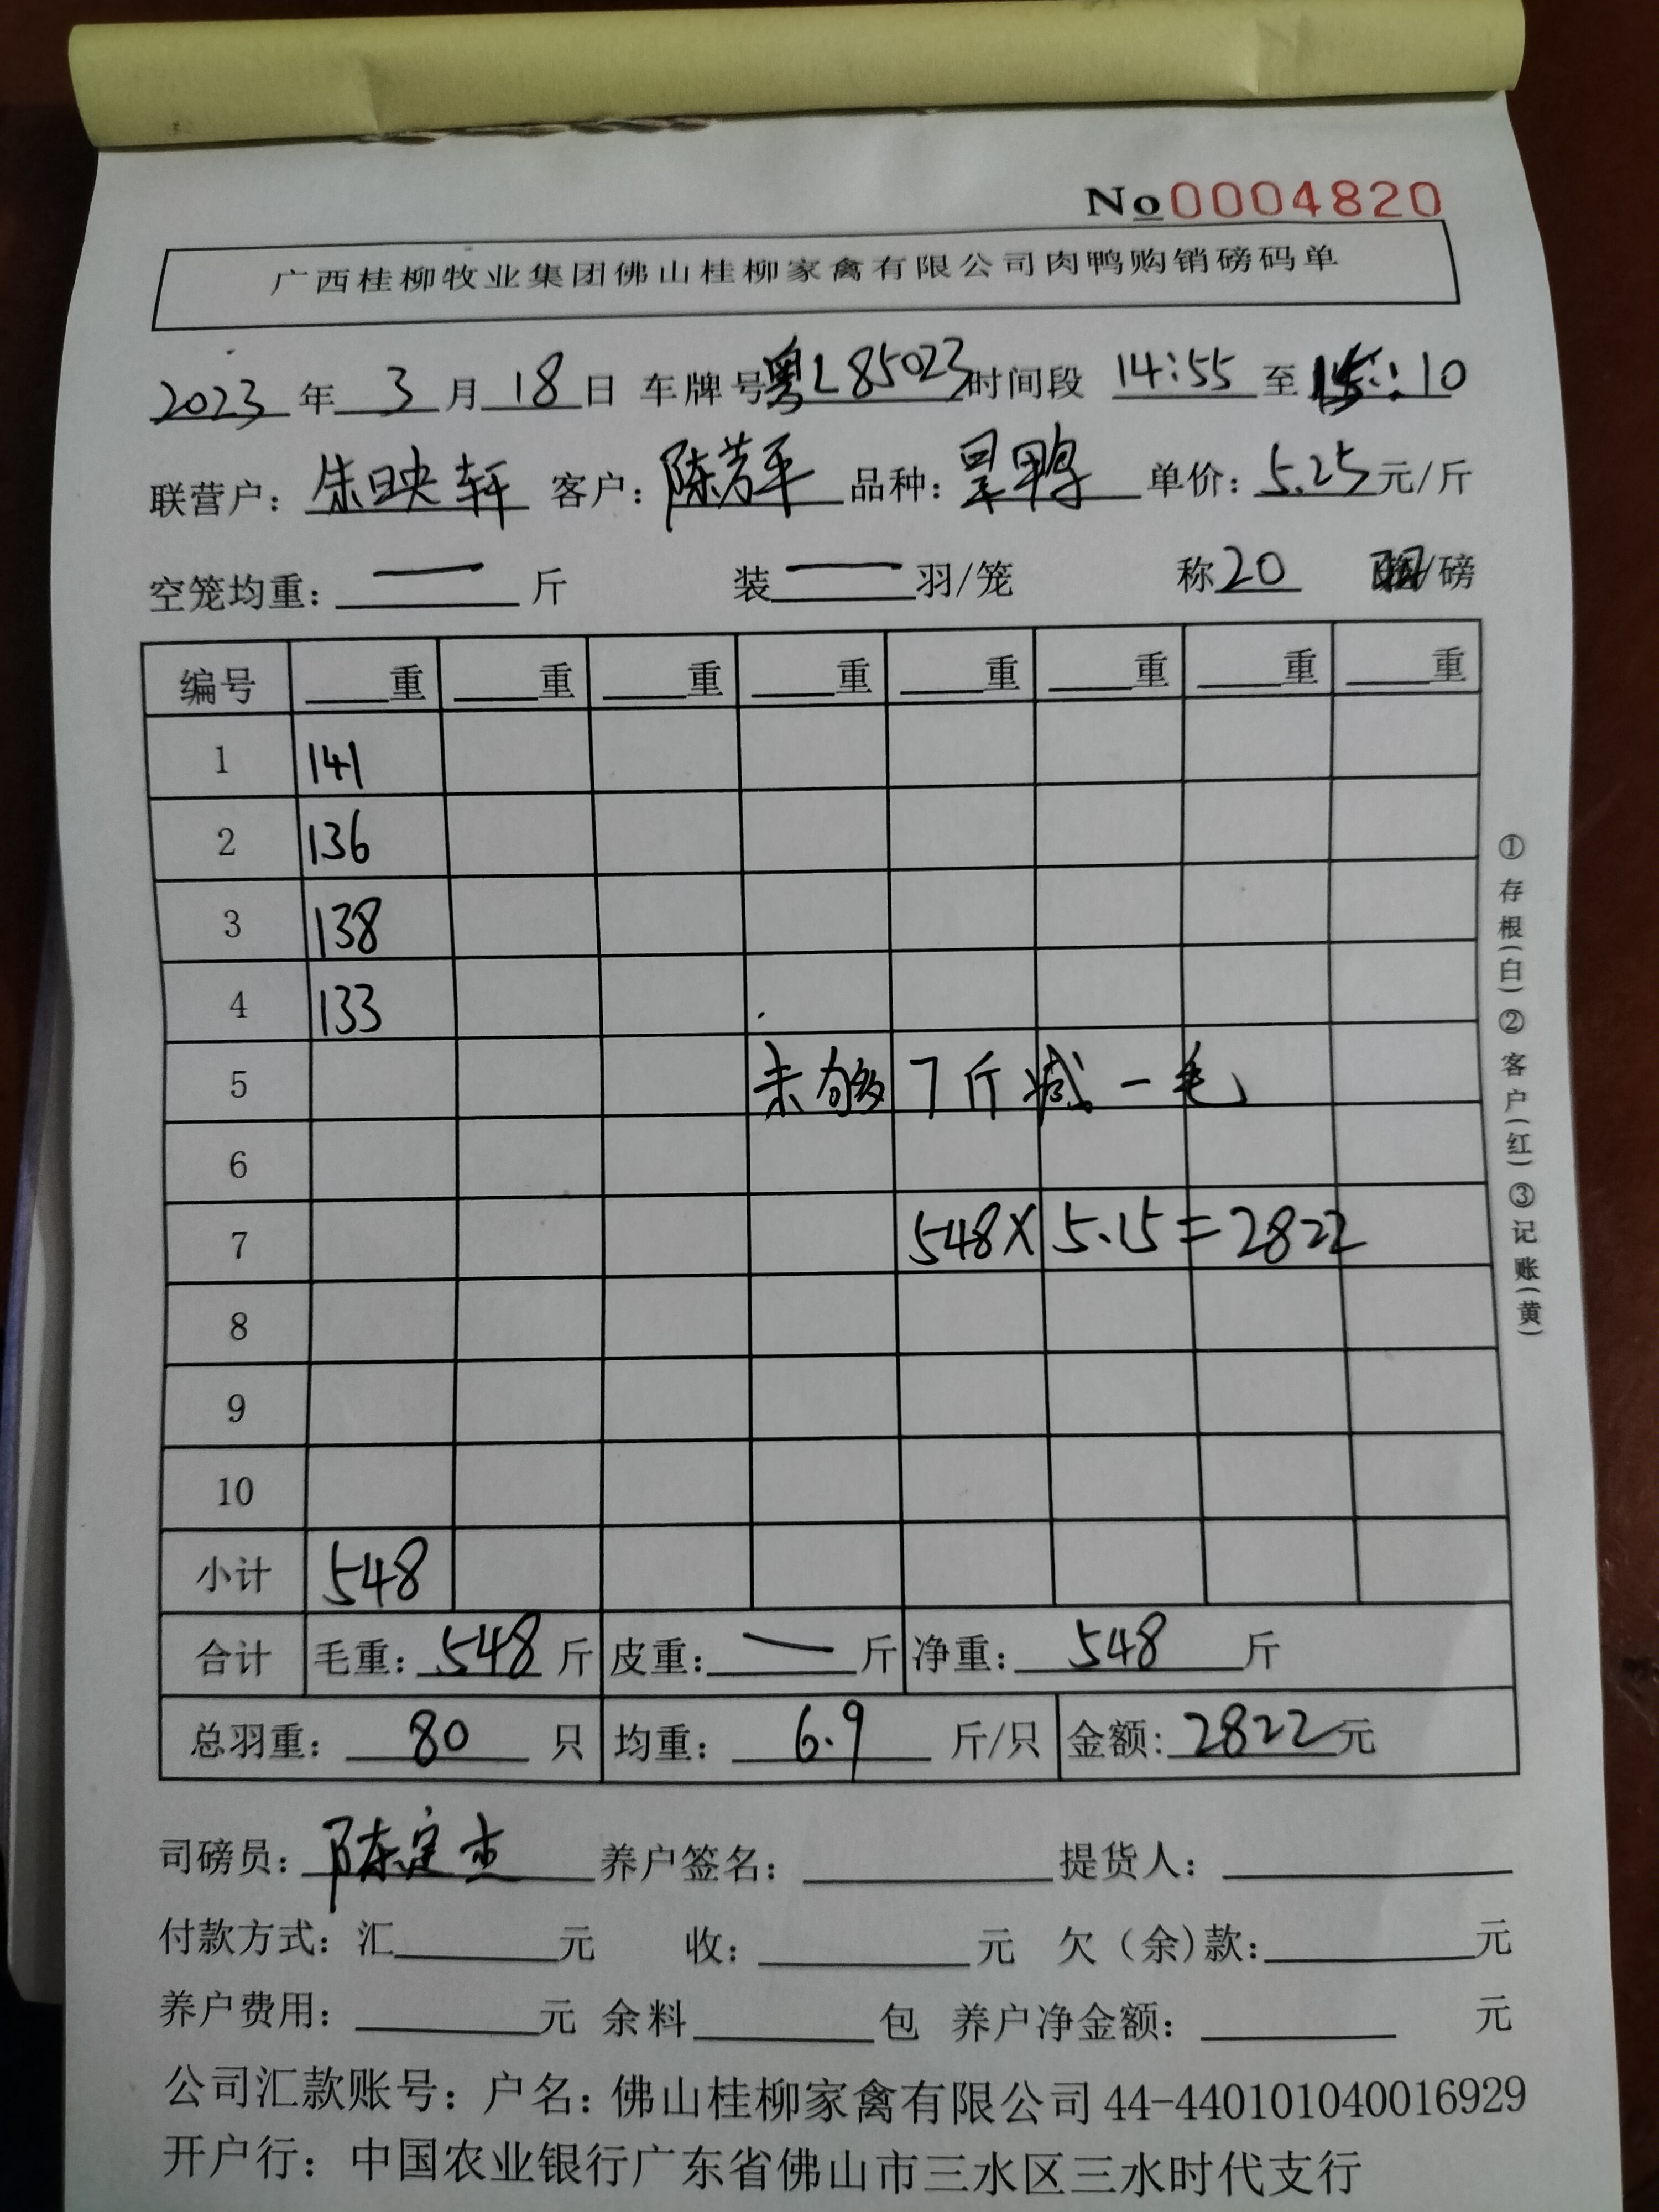 No 0004820
广西桂柳牧业集团佛山桂柳家禽有限公司肉鸭购销磅码单
2023年3月18日 车牌号粤L85023时间段 14:55至15:10
联营户：朱映轩 客户：陈芳平 品种：旱鸭 单价：5.25元/斤
空笼均重：一斤 装一羽/笼 称20 /磅
编号 重 重 重 重 重 重 重 重
1 141
2 136
3 138
4 133
5 未够7斤减一毛
6
7 548×5.15=2822
8
9
10
小计 548
合计 毛重：548斤 皮重：一斤 净重：548斤
总羽重：80只 均重：6.9斤/只 金额：2822元
司磅员：陈定杰 养户签名： 提货人：
付款方式：汇 元 收： 元 欠（余）款： 元
养户费用： 元 余料 包 养户净金额： 元
公司汇款账号：户名：佛山桂柳家禽有限公司44-440101040016929
开户行：中国农业银行广东省佛山市三水区三水时代支行
①存根（白）②客户（红）③记账（黄）